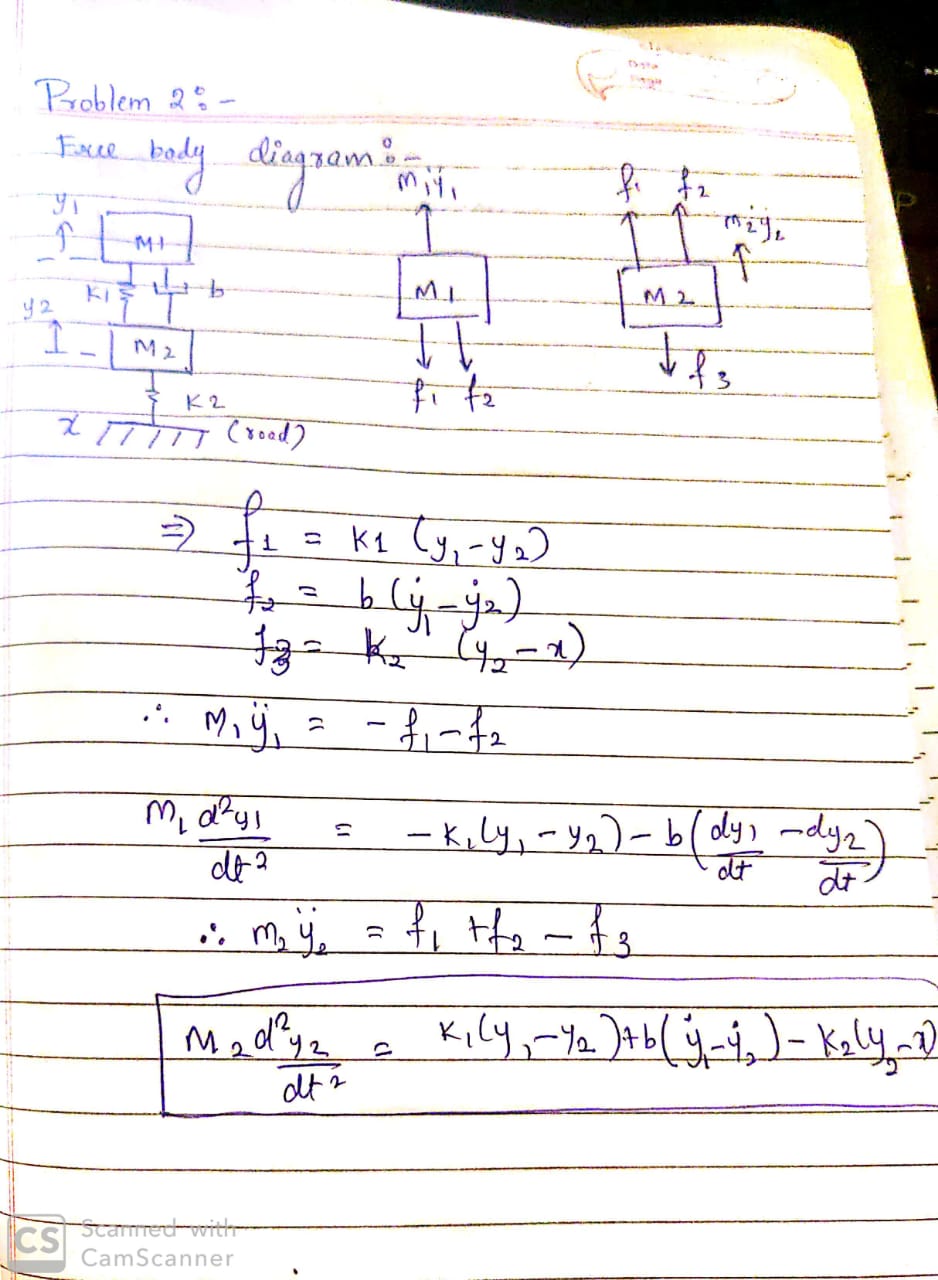 Problem 2 :-
Free body diagram :-
y1
M1
K1
b
y2
M2
K2
x
(road)
m1ÿ1
M1
f1 f2
f1 f2
m2ÿ2
M2
f3
⇒ f1 = K1 (y1-y2)
f2 = b (ẏ1-ẏ2)
f3 = K2 (y2-x)
∴ M1ÿ1 = -f1-f2
M1 d²y1/dt² = -K1(y1-y2)-b(dy1/dt -dy2/dt)
∴ m2ÿ2 = f1 +f2 - f3
M2 d²y2/dt² = K1(y1-y2)+b(ẏ1-ẏ2)-K2(y2-x)
CS Scanned with
CamScanner